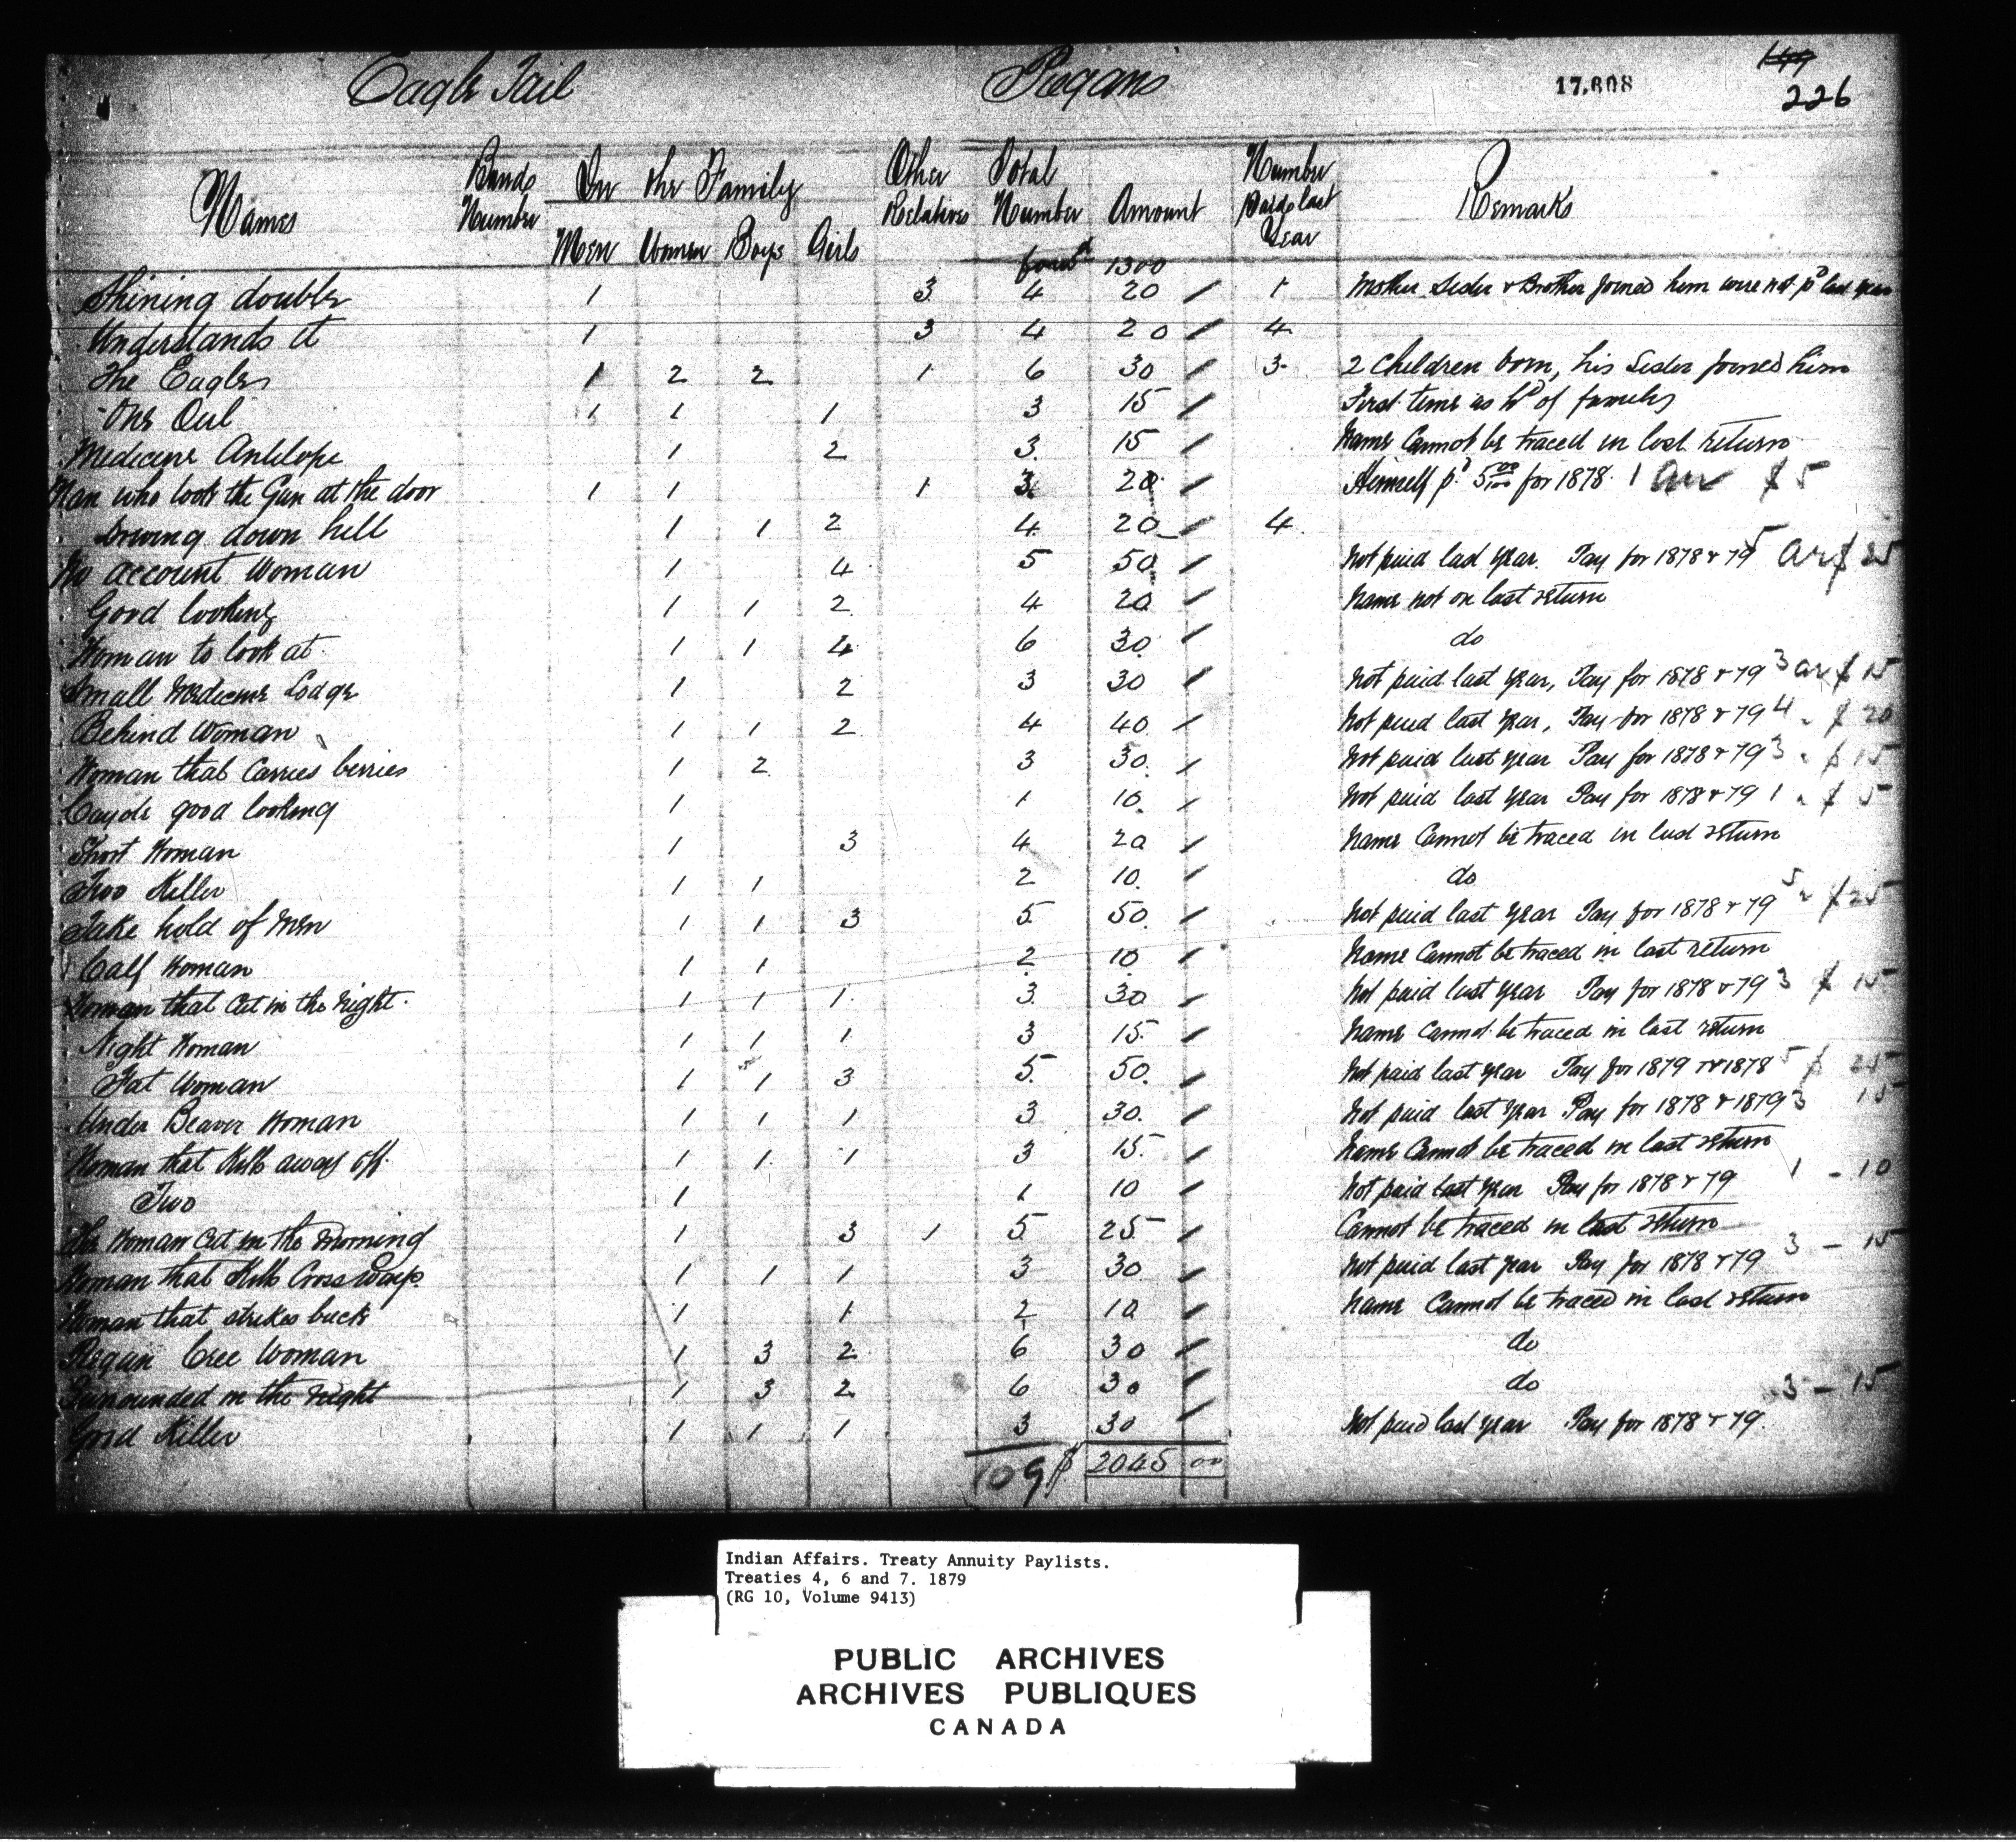 Eagle Tail Piegans 17,608 149
226
Names Bands Number In the Family Men Women Boys Girls Other Relatives Total Number Amount Number Paid last Year Remarks
forwd 1300
Shining double 1 3 4 20 / 1 Mother Sister & Brother joined him were not pd last year
Understands it 1 3 4 20 / 4
The Eagle 1 2 2 1 6 30 / 3 2 Children born, his Sister joined him
One Owl 1 1 1 3 15 / First time as hd of family
Medicine Antelope 1 2 3 15 / Name Cannot be traced in last return
Man who took the Gun at the door 1 1 1 3 20 / Himself pd 5 00/100 for 1878. 1 arr $5
down hill 1 1 2 4 20 / 4
No account Woman 1 4 5 50 / Not paid last year. Pay for 1878 & 79 5 ar $25
Good looking 1 1 2 4 20 / Name not on last return
Woman to look at 1 1 4 6 30 / do
Small Medicine Lodge 1 2 3 30 / Not paid last year, Pay for 1878 & 79 3 ar $15
Behind Woman 1 1 2 4 40 / Not paid last year, Pay for 1878 & 79 4 " $20
Woman that Carries berries 1 2 3 30 / Not paid last year Pay for 1878 & 79 3 " $15
Cayote good looking 1 1 10 / Not paid last year Pay for 1878 & 79 1 " $5
Short Woman 1 3 4 20 / Name Cannot be traced in last return
Two Killer 1 1 2 10 / do
Take hold of Men 1 1 3 5 50 / Not paid last year Pay for 1878 & 79 5 " $25
Calf Woman 1 1 2 10 / Name Cannot be traced in last return
Woman that Cut in the Night 1 1 1 3 30 / Not paid last year Pay for 1878 & 79 3 $15
Night Woman 1 1 1 3 15 / Name Cannot be traced in last return
Fat Woman 1 1 3 5 50 / Not paid last year Pay for 1879 & 1878 5 $25
Under Beaver Woman 1 1 1 3 30 / Not paid last year Pay for 1878 & 1879 3 15
Woman that Kills away off 1 1 1 3 15 / Name Cannot be traced in last return
Two 1 1 10 / Not paid last year Pay for 1878 & 79 1 - 10
The Woman Cut in the Morning 1 3 1 5 25 / Cannot be traced in last return
Woman that Kills Cross ways 1 1 1 3 30 / Not paid last year Pay for 1878 & 79 3 - 15
Woman that strikes back 1 1 2 10 / Name Cannot be traced in last return
Piegan Cree Woman 1 3 2 6 30 / do
Surrounded in the Night 1 3 2 6 30 / do
Good Killer 1 1 1 3 30 / Not paid last year Pay for 1878 & 79. 3 - 15
109 $ 2045 00
Indian Affairs. Treaty Annuity Paylists.
Treaties 4, 6 and 7. 1879
(RG 10, Volume 9413)
PUBLIC ARCHIVES
ARCHIVES PUBLIQUES
CANADA